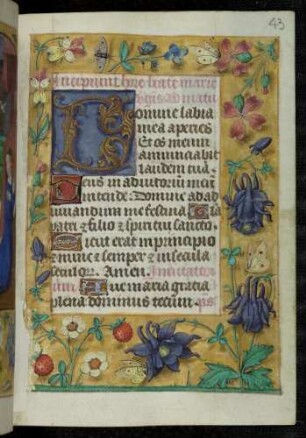 43
Incipiunt hore beate marie
Domine labia
mea aperies
Et os meum
annunciabit
laudem tuā.
Deus in adiutoriū meū
intende: Domine ad ad
iuuandum me festina. Gl̄ia
patri et filio et spiritui sancto.
Sicut erat in principio
et nunc et semper et in secula
seculoꝝ. Amen. Inuitatori
um Aue maria gracia
plena dominus tecum. ps̄